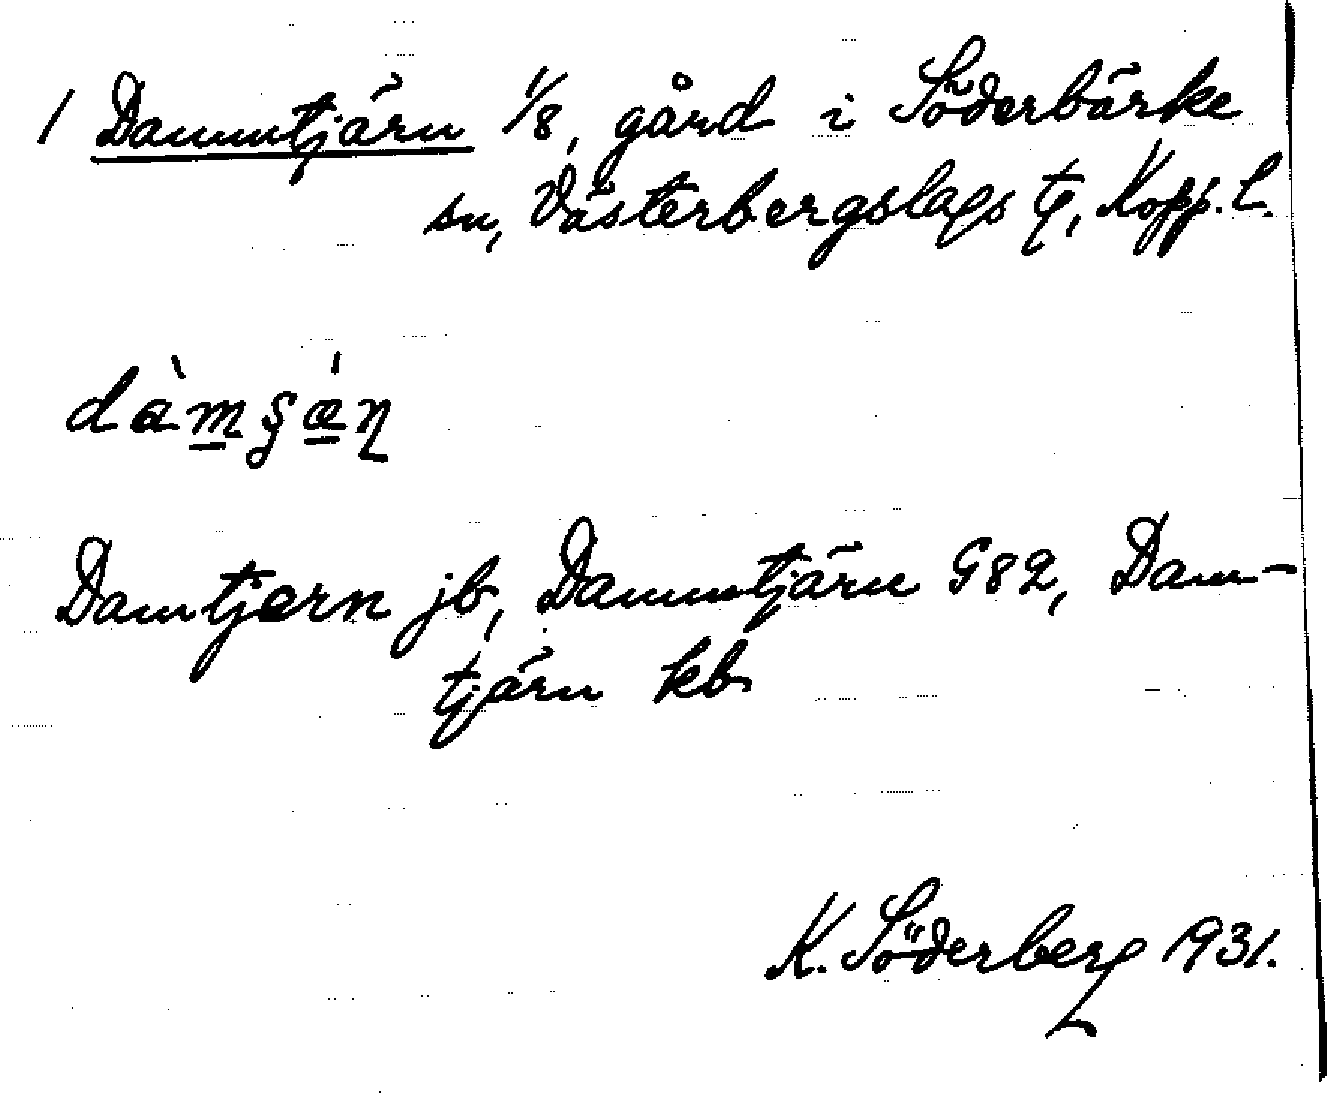 1 Dammtjärn 1/8, gård i Söderbärke
sn, Västerbergslags tg, Kopp. l.
dàmşǽn
Damtjern jb, Dammtjärn G82, Dam-
tjärn kb
K. Söderberg 1931.